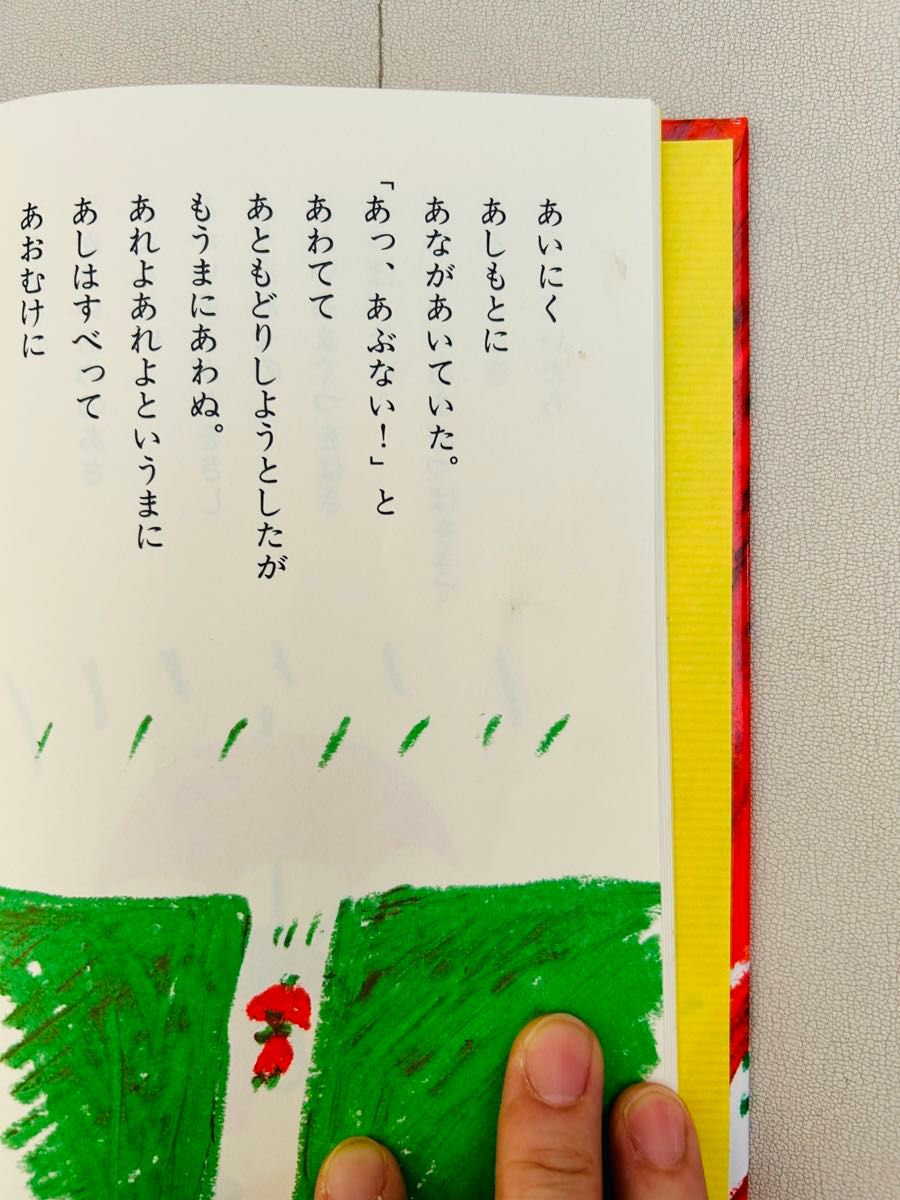 あいにく
あしもとに
あながあいていた。
「あっ、あぶない！」と
あわてて
あともどりしようとしたが
もうまにあわぬ。
あれよあれよというまに
あしはすべって
あおむけに